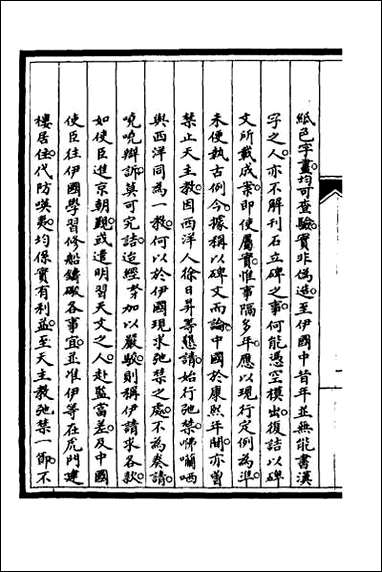 紙色字畫均可查驗實非偽造至伊國中昔年並無能書漢
字之人亦不解刊石立碑之事何能憑空模出復詰以碑
文所載成案即使屬實惟事隔多年應以現行定例為準
未便執古例今據稱以碑文而論中國於康熙年間亦曾
禁止天主教因西洋人徐日昇等懇請始行弛禁咈囒哂
與西洋同為一教何以於伊國現求弛禁之處不為奏請
嘵嘵辯訴莫可究詰造經努加以嚴駁則稱伊請求各款
如使臣進京朝覲或遣明習天文之人赴監當差及中國
使臣往伊國學習修船鑄礮各事宜並准伊等在虎門建
樓居住代防𠸄夷均係實有利益至天主教弛禁一節不